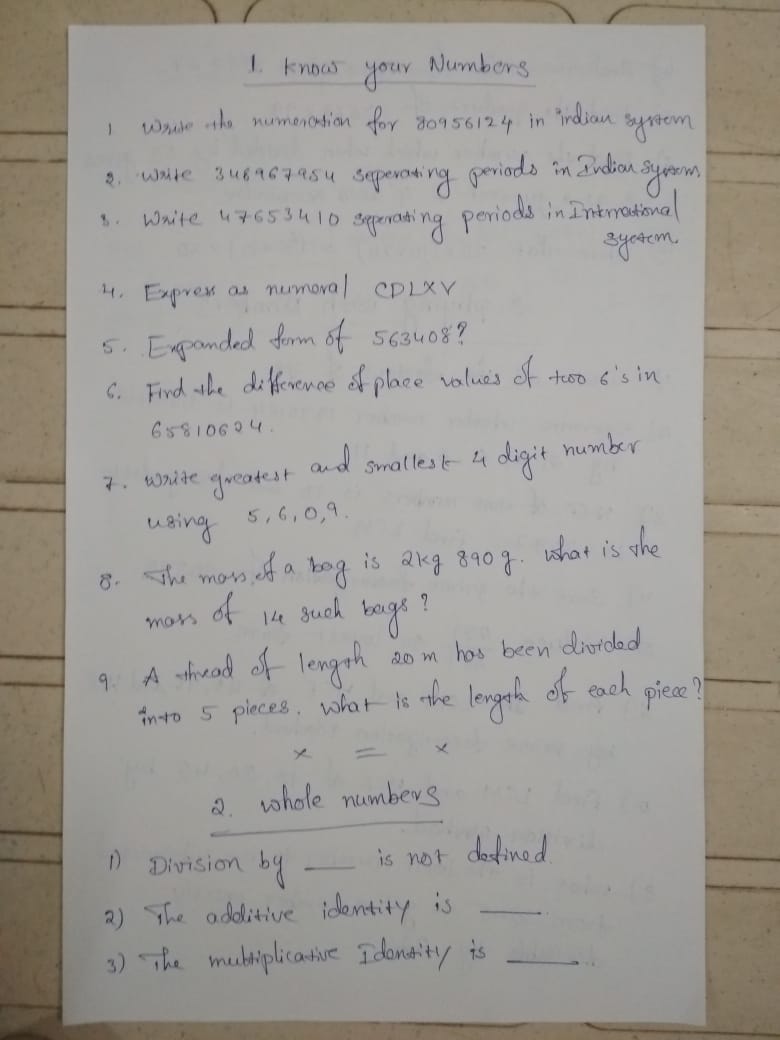 1. Know your Numbers
1 Write the numeration for 80956124 in indian system
2. Write 348967954 seperating periods in Indian System,
3. Write 47653410 seperating periods in International
system.
4. Express as numeral CDLXV
5. Expanded form of 563408?
6. Find the difference of place values of two 6's in
65810624.
7. Write greatest and smallest 4 digit number
using 5,6,0,9.
8. The mass of a bag is 2kg 890 g. what is the
mass of 14 such bags?
9. A thread of length 20 m has been divided
into 5 pieces. what is the length of each piece?
x = x
2. whole numbers
1) Division by ___ is not defined.
2) The additive identity is ___
3) The multiplicative Identity is ___.